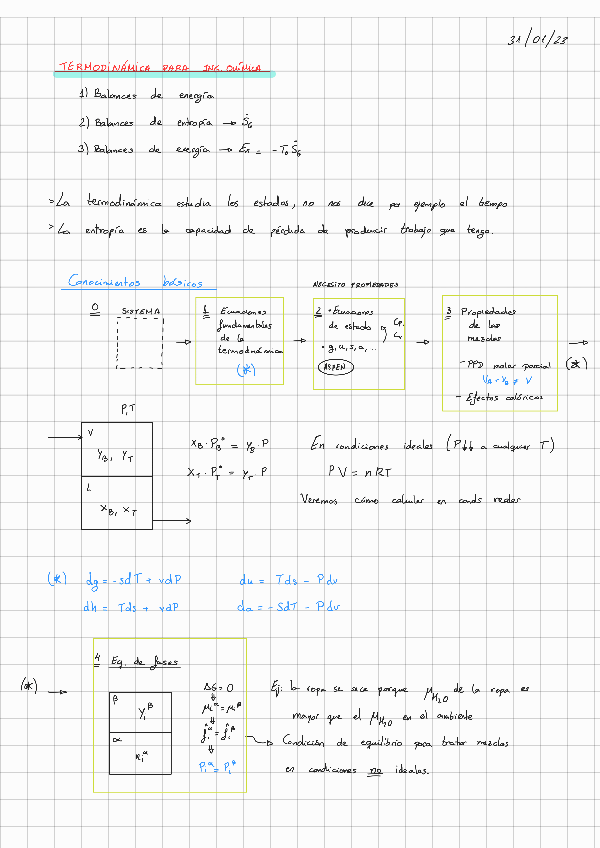 31/01/23
TERMODINÁMICA PARA ING. QUÍMICA
1) Balances de energía
2) Balances de entropía → Ṡ_G
3) Balances de exergía → Ėx = -T₀ Ṡ_G
> La termodinámica estudia los estados, no nos dice por ejemplo el tiempo
> La entropía es la capacidad de pérdida de producir trabajo que tengo.
Conocimientos básicos
NECESITO PROPIEDADES
0 SISTEMA
1 Ecuaciones
fundamentales
de la
termodinámica
(*)
2 • Ecuaciones
de estado
Cp, Cv
• g, u, s, a, ...
ASPEN
3 Propiedades
de las
mezclas
- PPD molar parcial
- Efectos calóricos
(*)
P, T
V
y_B, y_T
L
x_B, x_T
x_B · P_B* = y_B · P
x_T · P_T* = y_T · P
En condiciones ideales (P↓↓ a cualquier T)
PV = nRT
Veremos cómo calcular en conds reales
(*) dg = -sdT + vdP
du = Tds - Pdv
dh = Tds + vdP
da = -SdT - Pdv
4 Eq. de fases
(*) →
β
y_i^β
α
x_i^α
ΔG = 0
⇓
μ_i^α = μ_i^β
⇓
f̂_i^α = f̂_i^β
⇓
P_i^α = P_i^β
Ej: la ropa se seca porque μ_H₂O de la ropa es
mayor que el μ_H₂O en el ambiente
→ Condición de equilibrio para tratar mezclas
en condiciones no ideales.